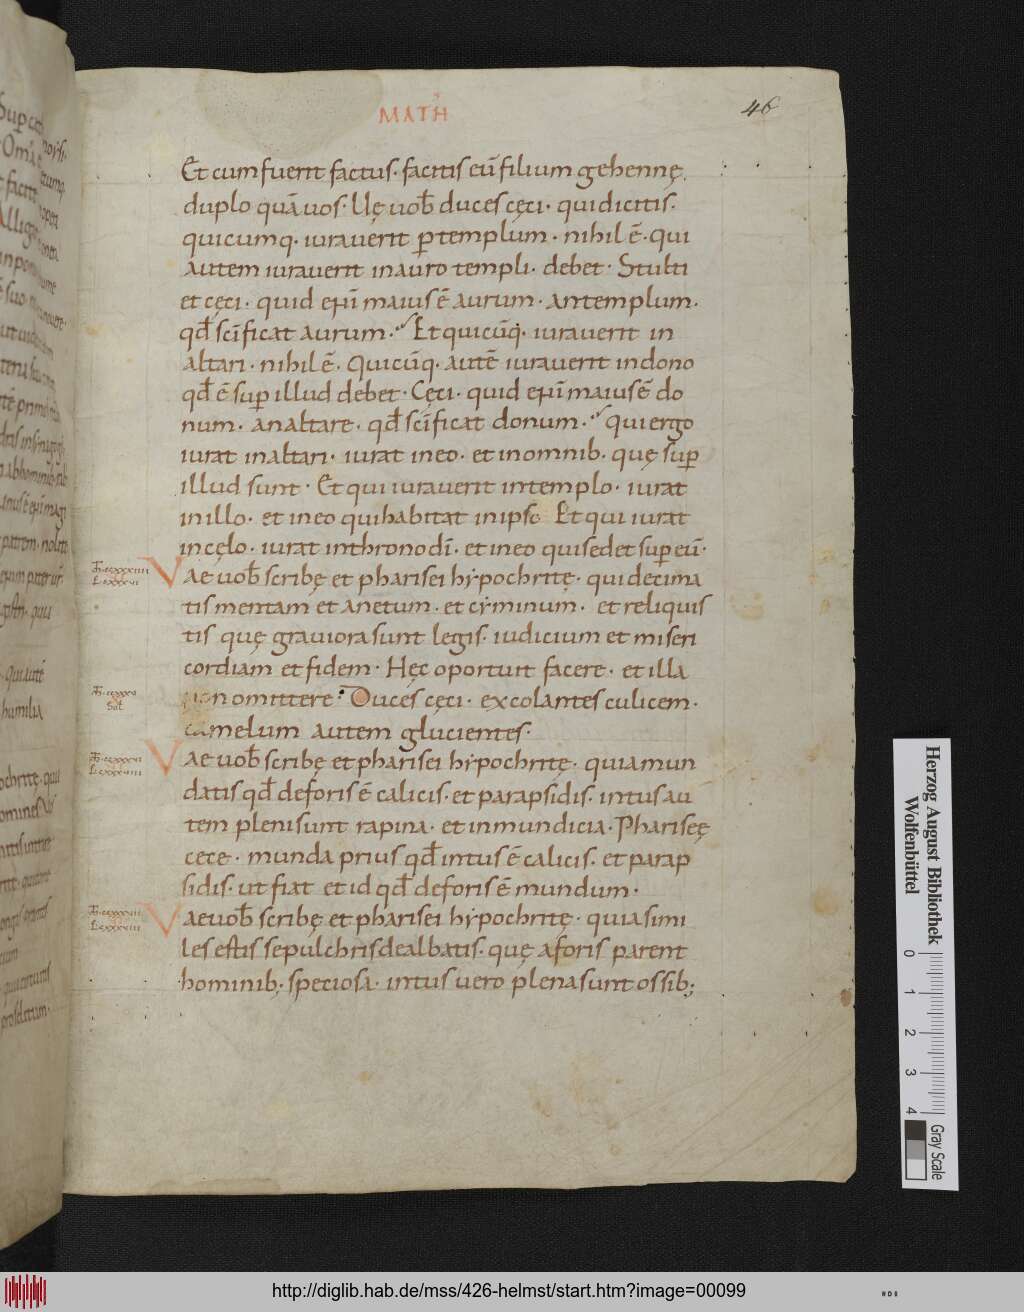 MATH
46
Et cum fuerit factus · facitis eū filium gehennę
duplo quā uos · Uę uob̄ duces cęci · qui dicitis ·
quicumq · iurauerit p templum · nihil ē · qui
autem iurauerit in auro templi · debet · Stulti
et cęci · quid eni maius ē aurum · an templum ·
qd̄ scīficat aurum · Et quicūq · iurauerit in
altari · nihil ē · Quicūq · autē iurauerit in dono
qd̄ ē sup illud debet · Cęci · quid eni maius ē do
num · an altare · qd̄ scīficat donum · qui ergo
iurat in altari · iurat in eo · et in omnib · quę sup
illud sunt · Et qui iurauerit in templo · iurat
in illo · et in eo qui habitat in ipso Et qui iurat
in cęlo · iurat in throno dī · et in eo qui sedet sup eū ·
Vae uob̄ scribę et pharisei hypochritę · qui decima
tis mentam et anetum · et cyminum · et reliquis
tis quę grauiora sunt legis · iudicium et miseri
cordiam et fidem · Hęc oportuit facere · et illa
non omittere · Duces cęci · excolantes culicem ·
camelum autem glucientes ·
Vae uob̄ scribę et pharisei hypochritę · quia mun
datis qd̄ deforis ē calicis · et parapsidis · intus au
tem pleni sunt rapina · et inmundicia · Phariseę
cece · munda prius qd̄ intus ē calicis · et parap
sidis · ut fiat et id qd̄ deforis ē mundum ·
Vae uob̄ scribę et pharisei hypochritę · quia simi
les estis sepulchris dealbatis · quę aforis parent
hominib; speciosa · intus uero plena sunt ossib;
Herzog August Bibliothek
Wolfenbüttel
0 1 2 3 4
Gray Scale
http://diglib.hab.de/mss/426-helmst/start.htm?image=00099